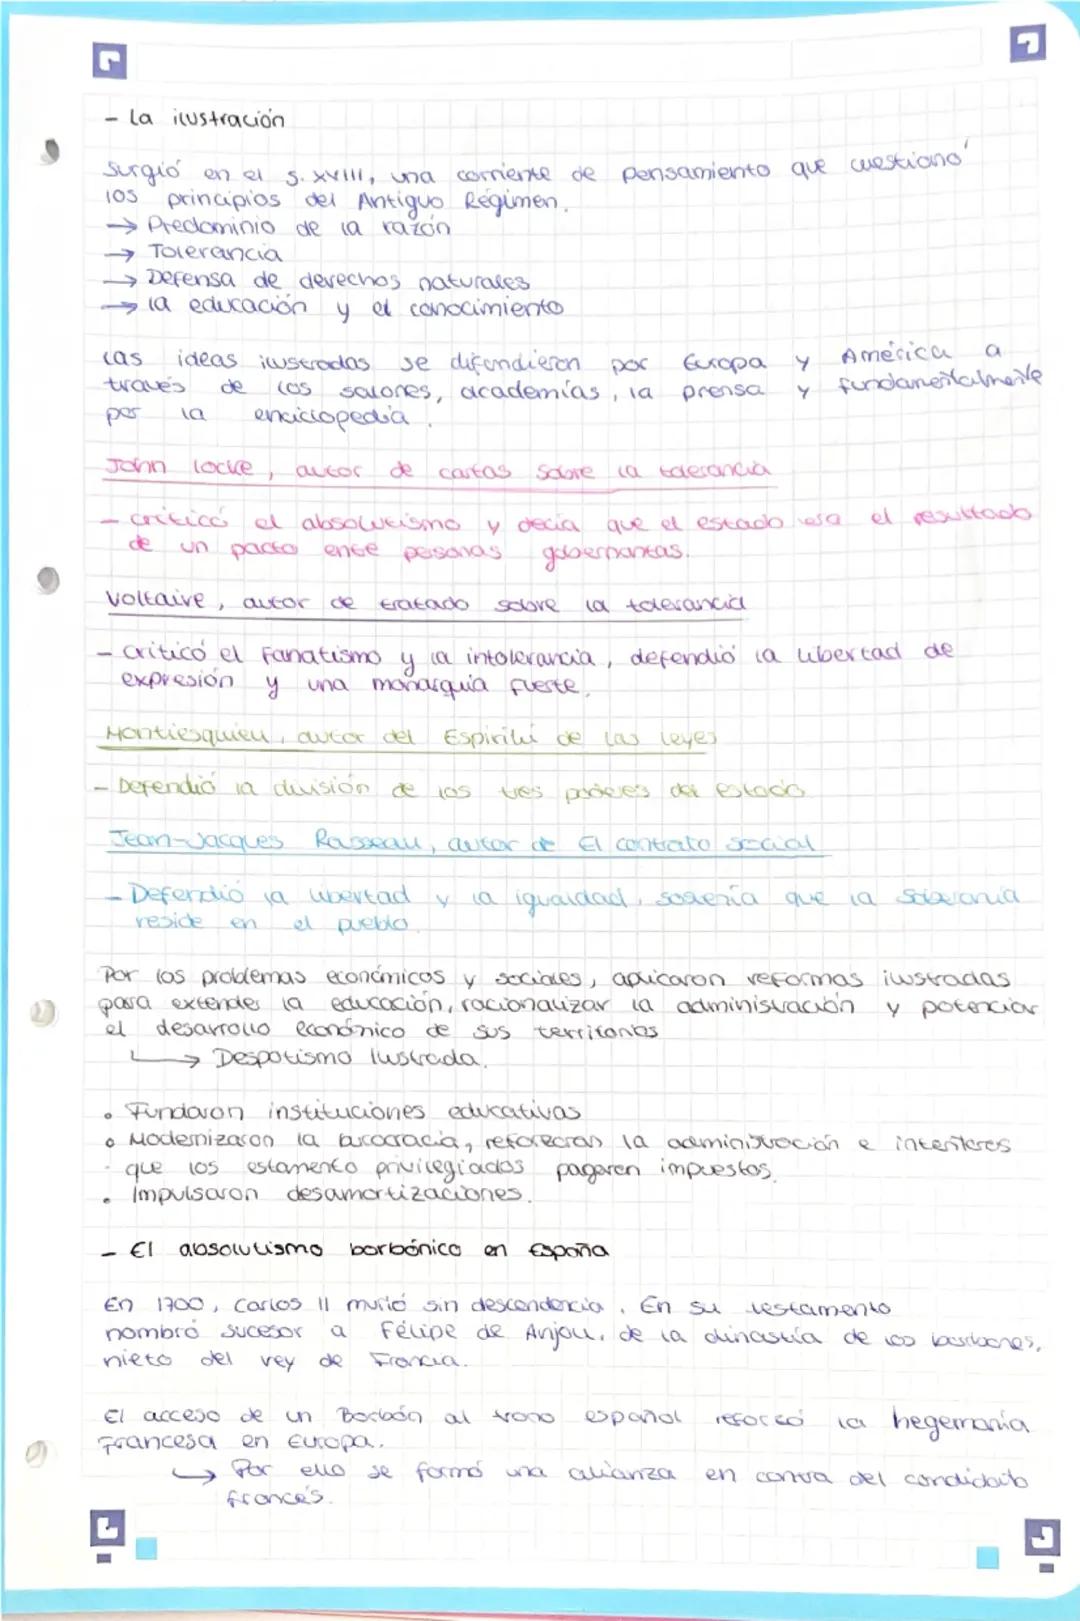 - La ilustración
Surgió en el s. XVIII, una corriente de pensamiento que cuestionó
los principios del Antiguo Régimen.
→ Predominio de la razón
→ Tolerancia
→ Defensa de derechos naturales
→ la educación y el conocimiento
Las ideas ilustradas se difundieron por Europa y América a
través de los salones, academias, la prensa y fundamentalmente
por la enciclopedia.
John Locke, autor de cartas sobre la tolerancia
- criticó el absolutismo y decía que el estado era el resultado
de un pacto entre personas gobernantas.
Voltaire, autor de tratado sobre la tolerancia
- criticó el fanatismo y la intolerancia, defendió la libertad de
expresión y una monarquía fuerte.
Montiesquieu, autor del Espíritu de las leyes
- Defendió la división de los tres poderes del estado
Jean-Jacques Rousseau, autor de El contrato social
- Defendió la libertad y la igualdad, sostenía que la soberanía
reside en el pueblo.
Por los problemas económicos y sociales, aplicaron reformas ilustradas
para extender la educación, racionalizar la administración y potenciar
el desarrollo económico de sus territorios
→ Despotismo Ilustrada.
• Fundaron instituciones educativas
• Modernizaron la burocracia, reforzaron la administración e
que los estamento privilegiados pagaren impuestos.
• Impulsaron desamortizaciones.
- El absolutismo borbónico en España
En 1700, Carlos II murió sin descendencia. En su testamento
nombró sucesor a Félipe de Anjou, de la dinastía de los borbones,
nieto del rey de Francia.
El acceso de un Borbón al trono español reforzó la hegemonía
Francesa en Europa.
→ Por ello se formó una alianza en contra del candidato
francés.